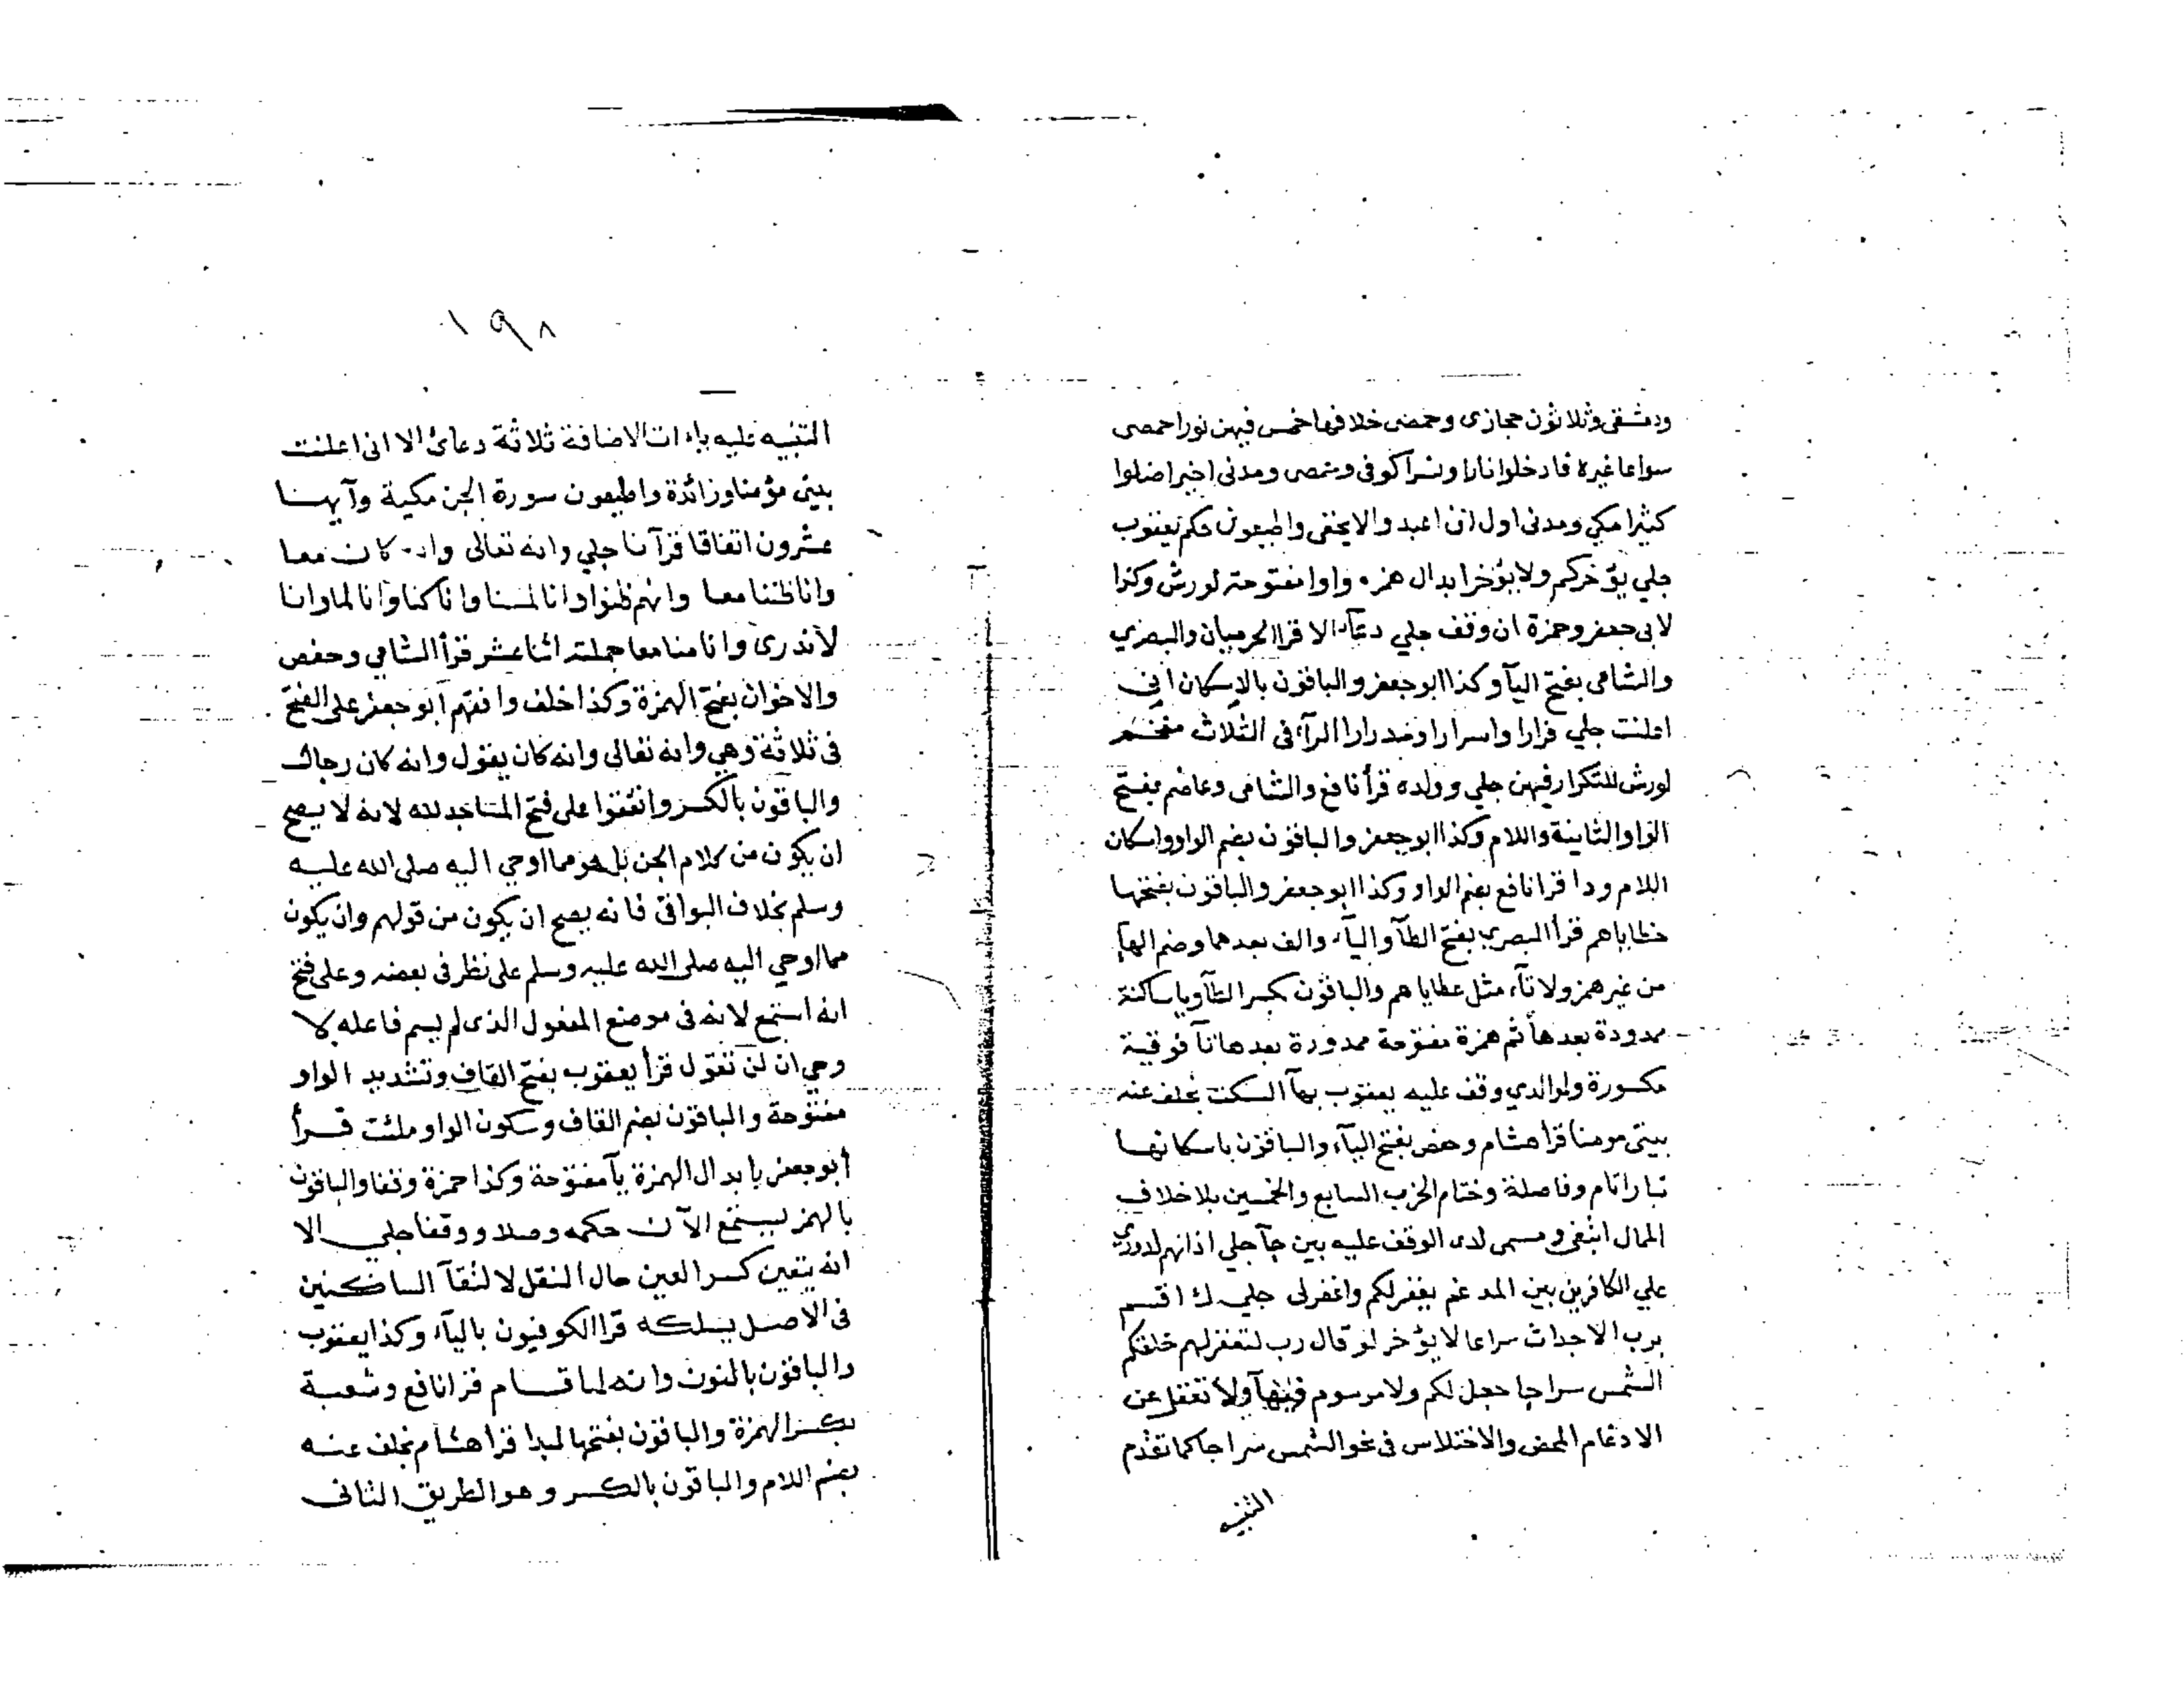 ودمشقي وثلاثون حجازى وحمصى خلافها خمس فيهن نورا حمصى
سواعا غيره فادخلوا نارا ونسرا كوفى وحمصى ومدنى اخير اضلوا
كثيرا مكي ومدنى اول ان اعبدوا لا يخفى واطيعون حكم يعقوب
جلي يؤخركم ولا يؤخر ابدال همزه واوا مفتوحة لورش وكذا
لابى جعفر وحمزة ان وقف جلي دعآءى الا قرا الحرميان والبصري
والشامى بفتح اليآ وكذا ابو جعفر والباقون بالاسكان انى
اعلنت جلي فرارا واسرارا ومدرارا الرآء فى الثلاث مفخم
لورش للتكرار فيهن جلي وولده قرأ نافع والشامى وعاصم بفتح
الواو الثانية واللام وكذا ابو جعفر والباقون بضم الواو واسكان
اللام ودا قرا نافع بضم الواو وكذا ابو جعفر والباقون بفتحها
خطاياهم قرأ البصري بفتح الطآ واليآء والف بعدهما وضم الهآ
من غير همز ولا تآء مثل عطاياهم والباقون بكسر الطآ ويا ساكنة
ممدودة بعدها ثم همزة مفتوحة ممدودة بعدها تآ فوقية
مكسورة ولوالدي وقف عليه يعقوب بهآ السكت بخلف عنه
بيتى مومنا قرا هشام وحفص بفتح اليآء والباقون باسكانها
تبارا تام وفاصلة وختام الحزب السابع والخمسين بلا خلاف
الممال ابتغى ومسمى لدى الوقف عليه بين جآ جلي اذانهم لدوري
علي الكافرين بين المدغم يغفر لكم واغفر لى جلي ك اقسم
برب الاجداث سراعا لا يؤخر لو قال رب لتغفر لهم خلقكم
الشمس سراجا جعل لكم ولا مرسوم فيها ولا تغفل عن
الادغام المحض والاختلاس فى نحو الشمس سراجا كما تقدم
التنبيه
١٩٨
التنبيه عليه ياءات الاضافة ثلاثة دعائى الا انى اعلنت
بيتى مؤمنا وزائدة واطيعون سورة الجن مكية وآيها
عشرون اتفاقا قرآنا جلي وانه تعالى وانه كان معا
وانا ظننا معا وانهم ظنوا وانا لمسنا وانا كنا وانا لما وانا
لاندرى وانا منا معا جملته اثنا عشر قرأ الشامي وحفص
والاخوان بفتح الهمزة وكذا خلف وافقهم ابو جعفر على الفتح
فى ثلاثة وهي وانه تعالى وانه كان يقول وانه كان رجال
والباقون بالكسر واتفقوا على فتح المساجد لله لانه لا يصح
ان يكون من كلام الجن بل هو مما اوحي اليه صلى الله عليه
وسلم بخلاف البواقى فانه يصح ان يكون من قولهم وان يكون
مما اوحي اليه صلى الله عليه وسلم على نظر فى بعضه وعلى فتح
انه استمع لانه فى موضع المفعول الذى لم يسم فاعله لا
وحي ان لن تقول قرأ يعقوب بفتح القاف وتشديد الواو
مفتوحة والباقون بضم القاف وسكون الواو ملئت قرأ
أبو جعفر بابدال الهمزة يآ مفتوحة وكذا حمزة وقفا والباقون
بالهمز يستمع الآن حكمه وصلا ووقفا جلي الا
انه يتعين كسر العين حال النقل لالتقآ الساكنين
فى الاصل يسلكه قرا الكوفيون باليآء وكذا يعقوب
والباقون بالنون وانه لما قام قرا نافع وشعبة
بكسر الهمزة والباقون بفتحها لبدا قرا هشام بخلف عنه
بضم اللام والباقون بالكسر وهو الطريق الثانى